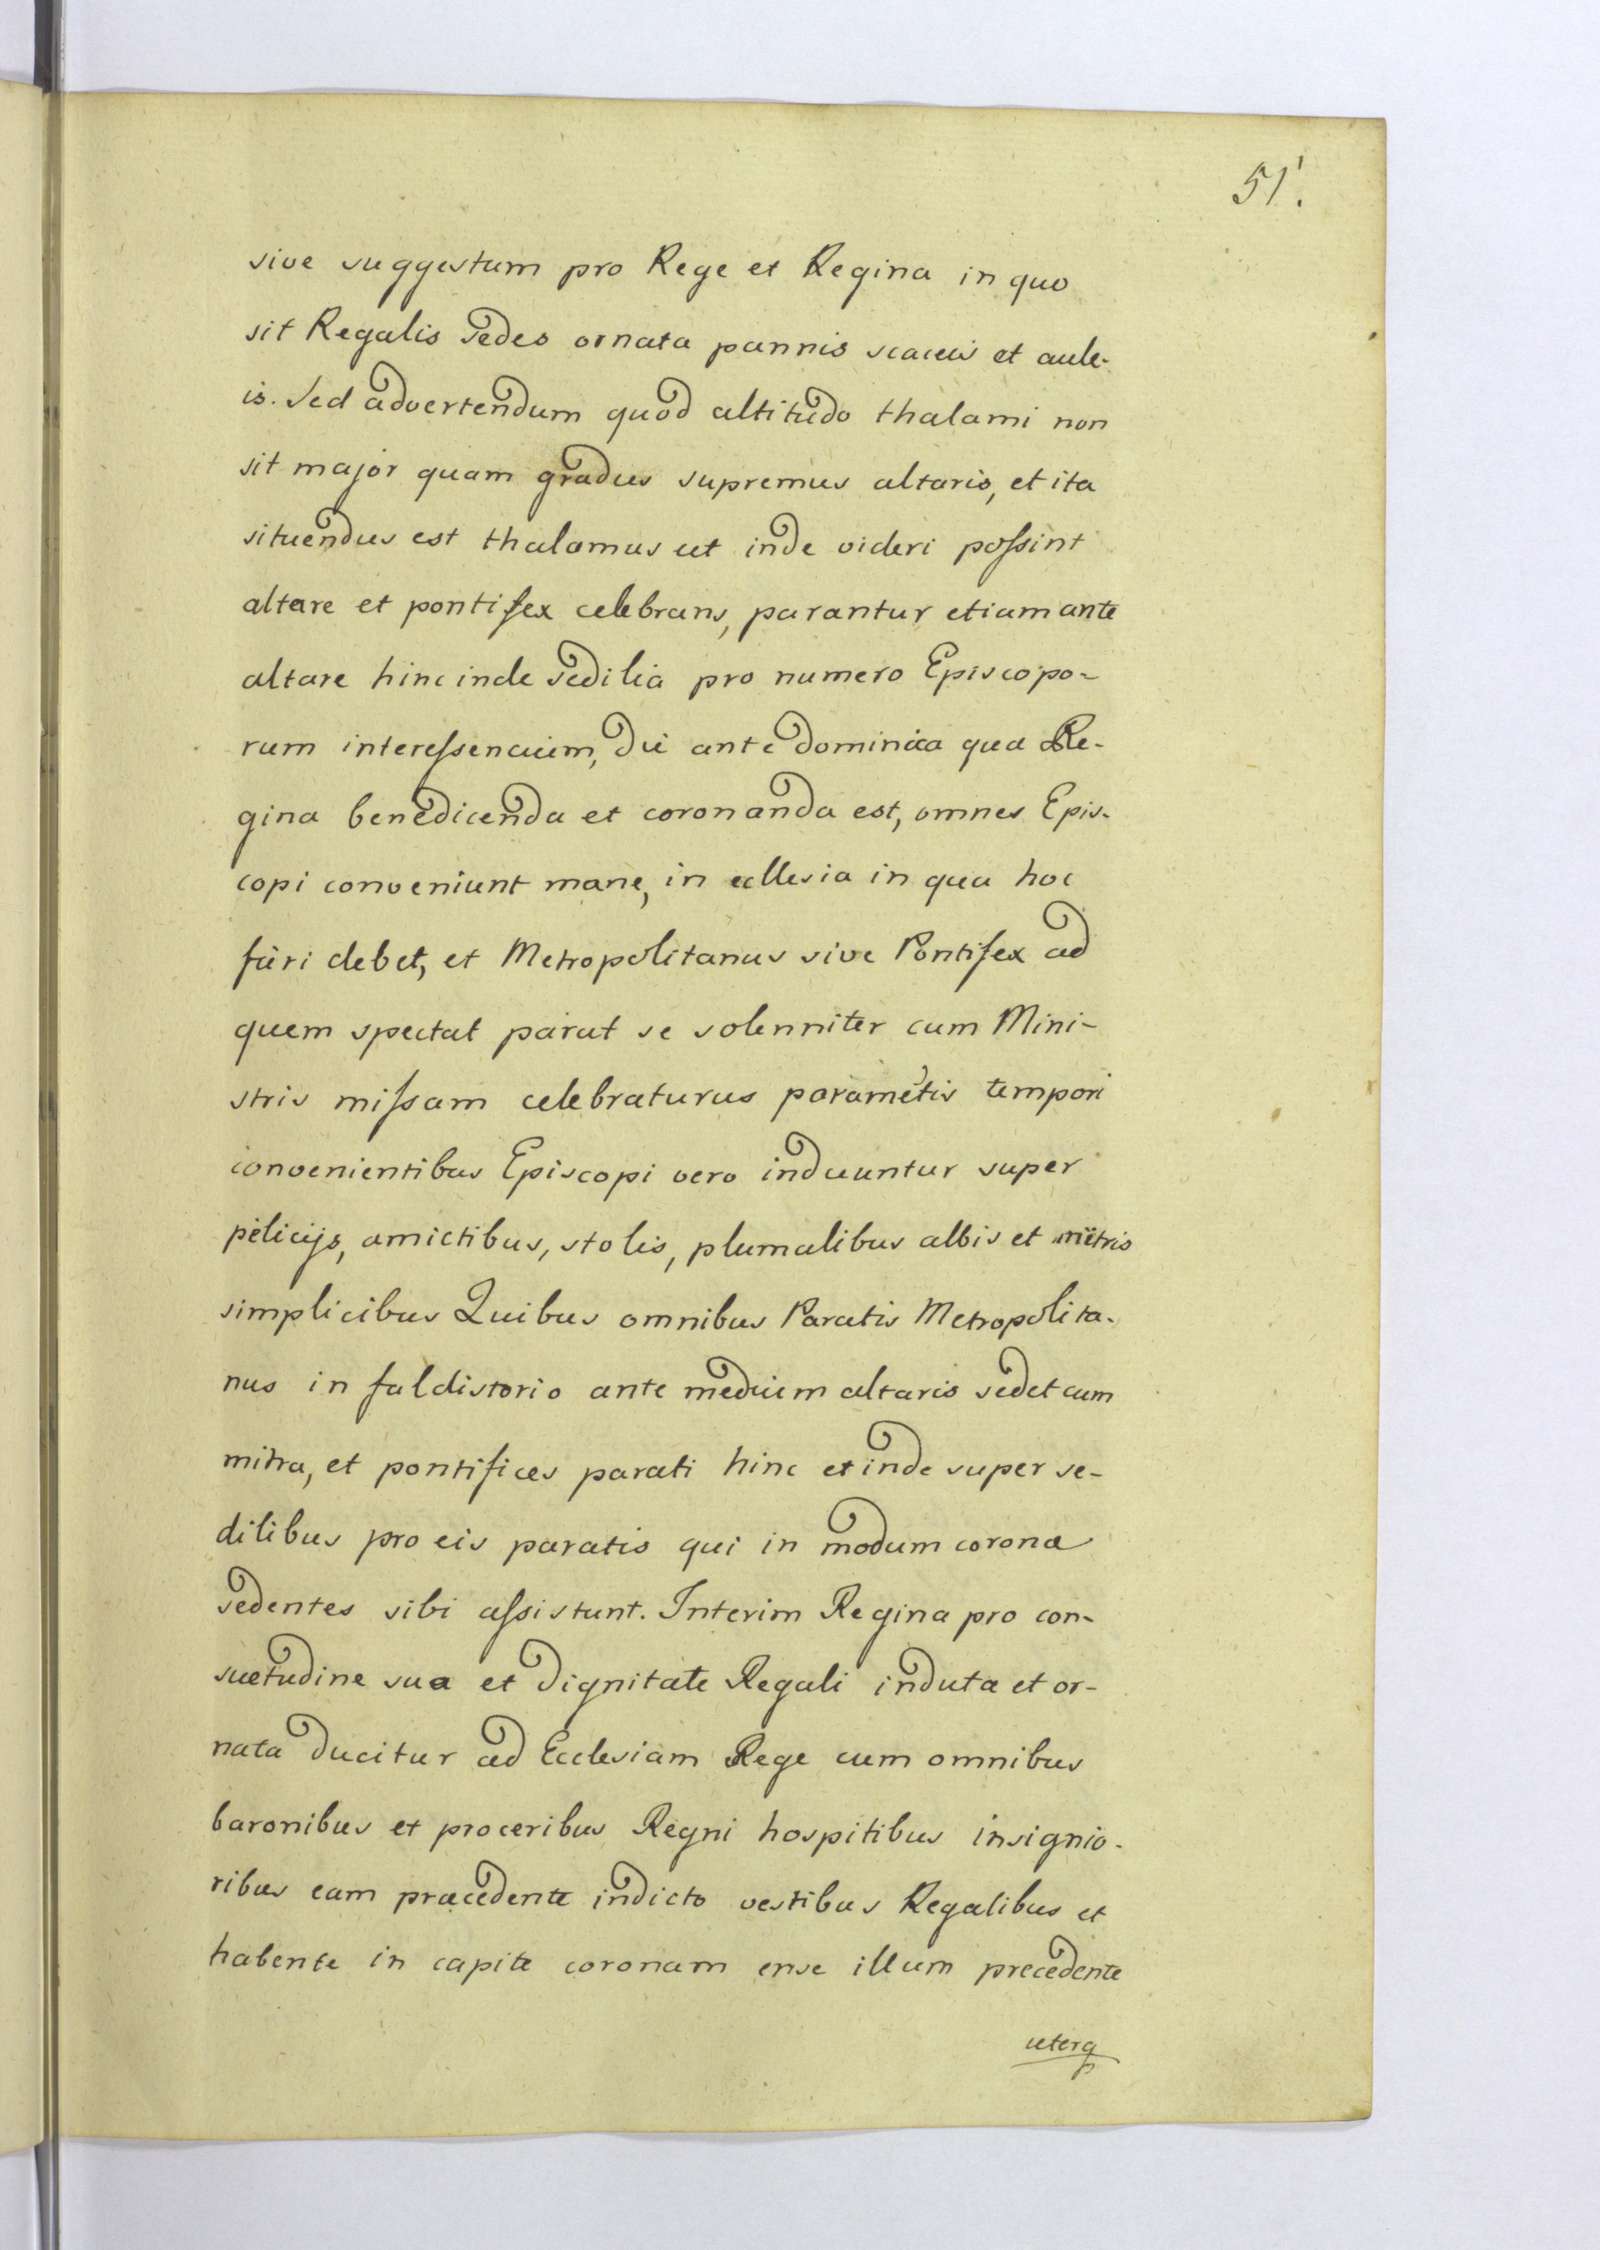 51.
sive suggestum pro Rege et Regina in quo
sit Regalis sedes ornata pannis sericeis et aule-
is. Sed advertendum quod altitudo thalami non
sit major quam gradus supremus altaris, et ita
situendus est thalamus ut inde videri poſsint
altare et pontifex celebrans, parantur etiam ante
altare hinc inde sedilia pro numero Episcopo-
rum intereſsencium, die ante dominica qua Re-
gina benedicenda et coronanda est, omnes Epis-
copi conveniunt mane, in ecclesia in qua hoc
fieri debet, et Metropolitanus sive Pontifex ad
quem spectat parat se solenniter cum Mini-
stris miſsam celebraturus parametis tempori
convenientibus Episcopi vero induuntur super
pelicijs, amictibus, stolis, plumalibus albis et mitris
simplicibus Quibus omnibus Paratis Metropolita-
nus in faldistorio ante medium altaris sedet cum
mitra, et pontifices parati hinc et inde super se-
dilibus pro eis paratis qui in modum coronæ
sedentes sibi aſsistunt. Interim Regina pro con-
suetudine sua et dignitate Regali induta et or-
nata ducitur ad Ecclesiam Rege cum omnibus
baronibus et proceribus Regni hospitibus insignio-
ribus eam præcedente indicto vestibus Regalibus et
habente in capite coronam ense illum precedente
uterq